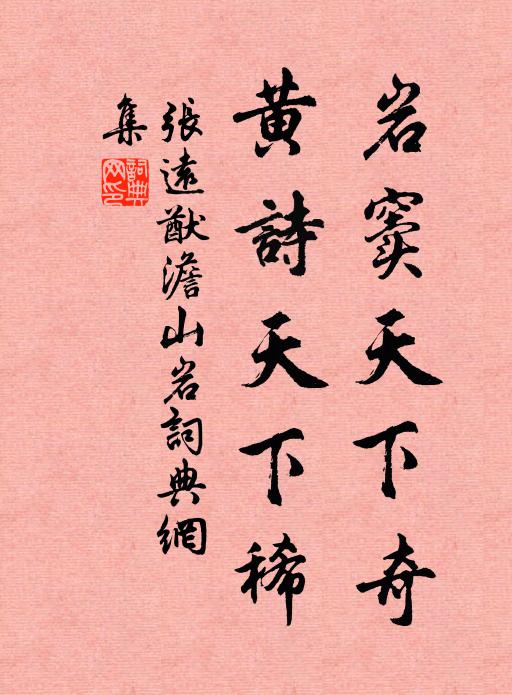 岩窦天下奇
黄詩天下稀
張遠猷澹山岩詞典網
集
詞典网印